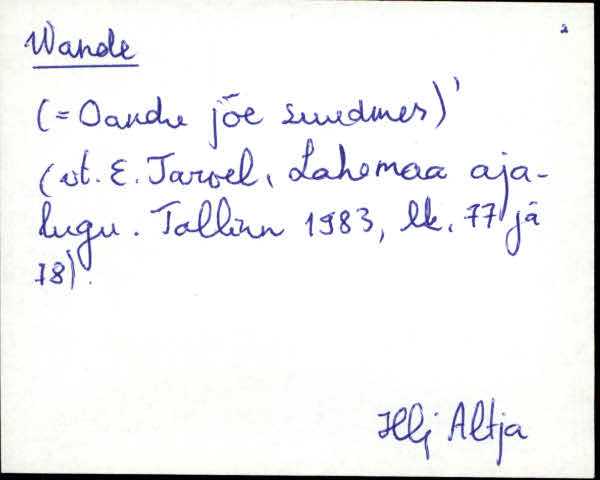 Wande
2
(= Oandu jõe suudmes)'
(vt. E. Tarvel, Lahemaa aja-
lugu. Tallinn 1983, lk. 77 ja
78).
Hlj Altja